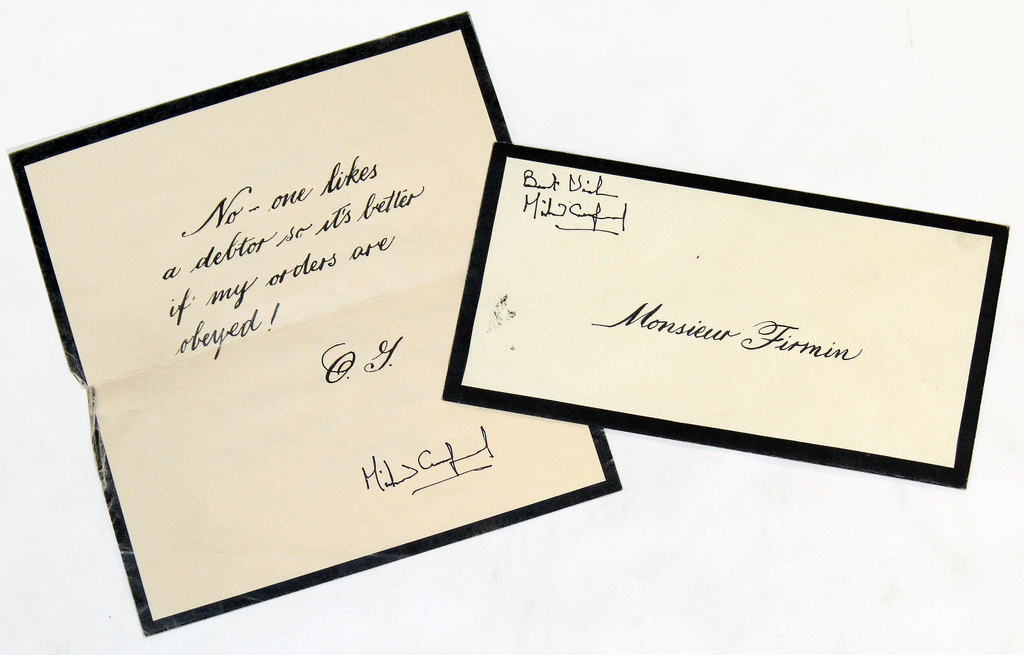 No - one likes
a debtor so it's better
if my orders are
obeyed!
O. G.
Michael Crawford
Best Wishes
Michael Crawford
Monsieur Firmin